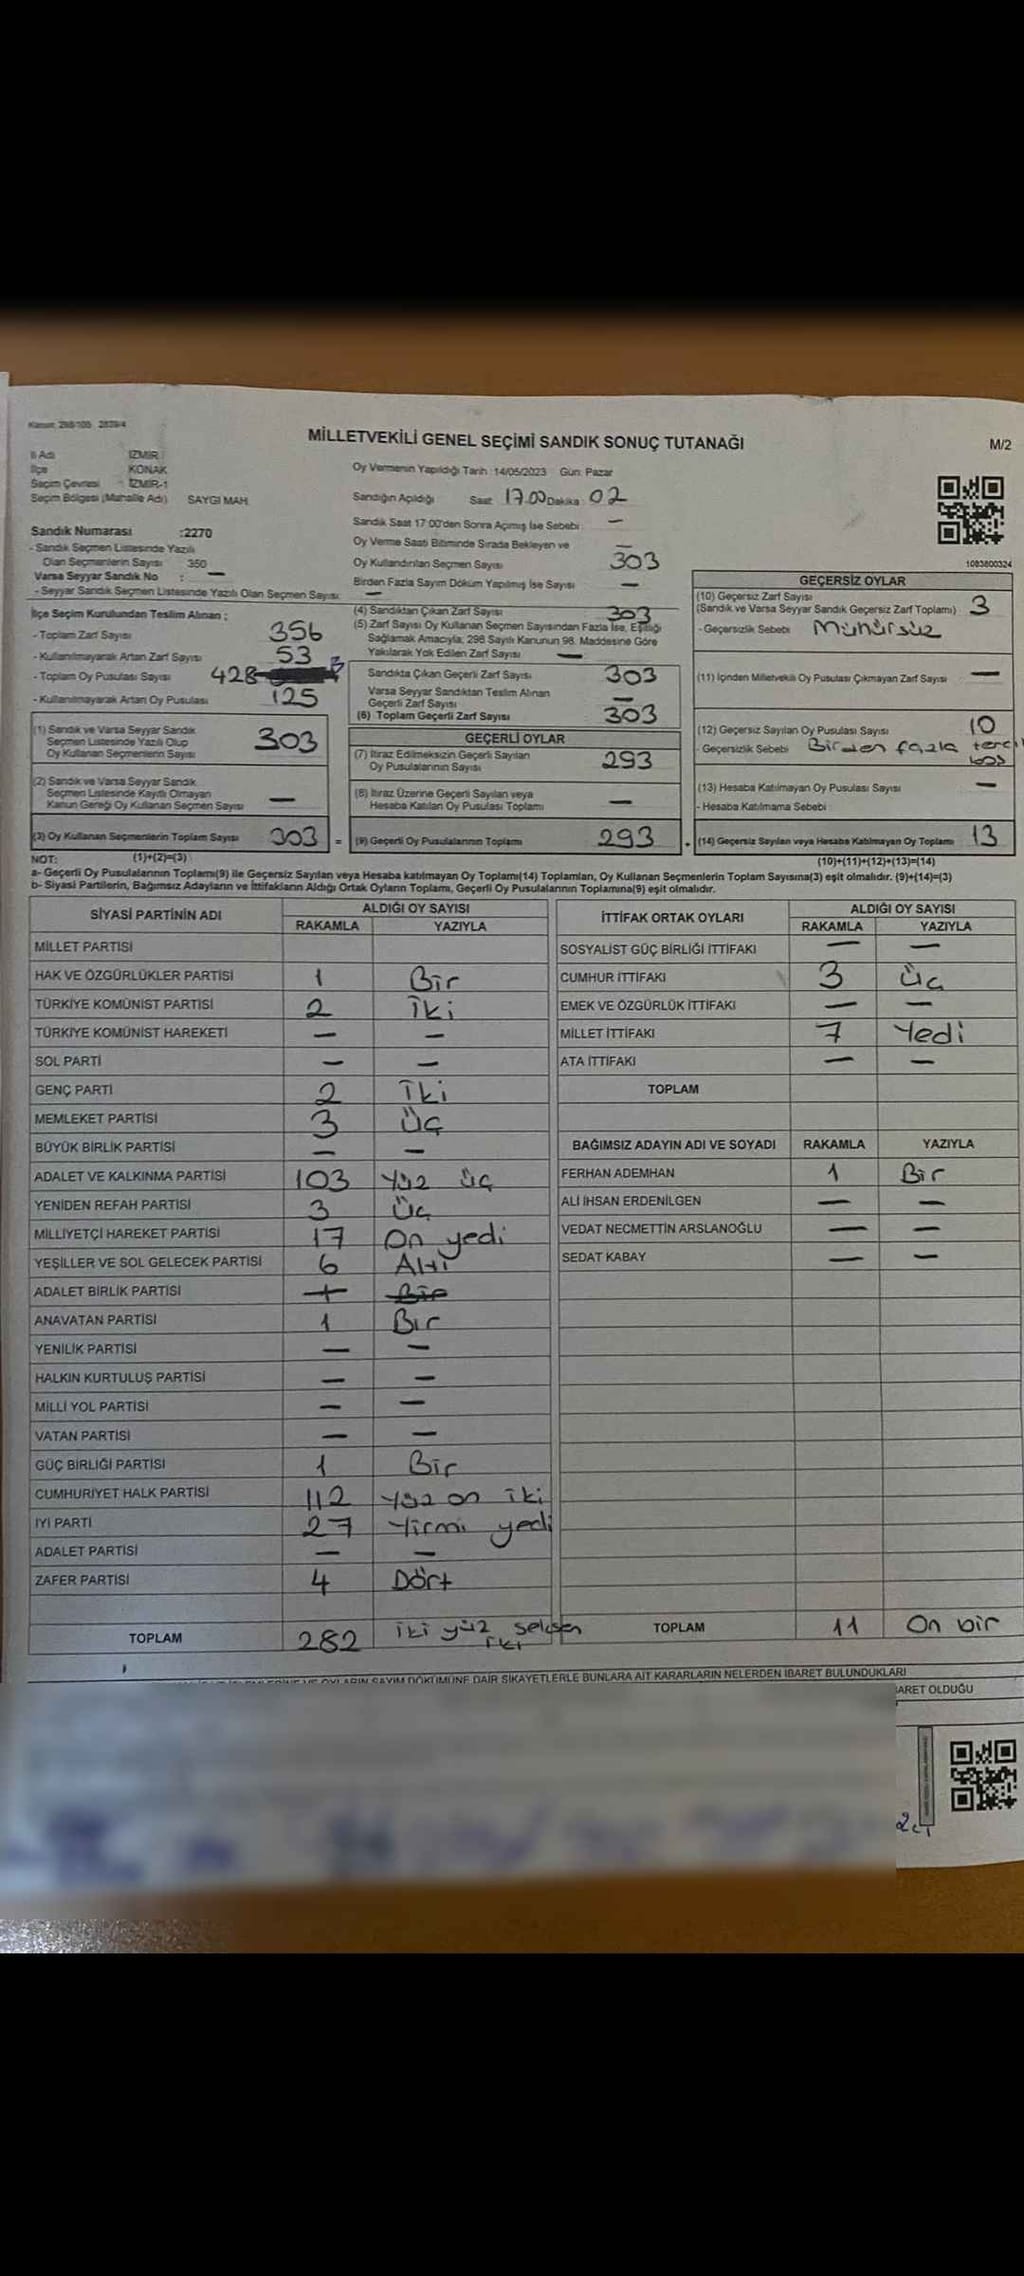 Kanun: 298/105 2839/4
MİLLETVEKİLİ GENEL SEÇİMİ SANDIK SONUÇ TUTANAĞI
M/2
İl Adı İZMİR
İlçe KONAK
Seçim Çevresi İZMİR-1
Seçim Bölgesi (Mahalle Adı) SAYGI MAH.
Sandık Numarası :2270
- Sandık Seçmen Listesinde Yazılı
Olan Seçmenlerin Sayısı 350
Varsa Seyyar Sandık No : —
- Seyyar Sandık Seçmen Listesinde Yazılı Olan Seçmen Sayısı: —
İlçe Seçim Kurulundan Teslim Alınan :
- Toplam Zarf Sayısı 356
- Kullanılmayarak Artan Zarf Sayısı 53
- Toplam Oy Pusulası Sayısı 428
- Kullanılmayarak Artan Oy Pusulası 125
(1) Sandık ve Varsa Seyyar Sandık
Seçmen Listesinde Yazılı Olup
Oy Kullanan Seçmenlerin Sayısı 303
(2) Sandık ve Varsa Seyyar Sandık
Seçmen Listesinde Kayıtlı Olmayan
Kanun Gereği Oy Kullanan Seçmen Sayısı —
(3) Oy Kullanan Seçmenlerin Toplam Sayısı 303 =
NOT: (1)+(2)=(3)
Oy Vermenin Yapıldığı Tarih :14/05/2023 Gün: Pazar
Sandığın Açıldığı Saat 17.00 Dakika 02
Sandık Saat 17:00'den Sonra Açımış İse Sebebi —
Oy Verme Saati Bitiminde Sırada Bekleyen ve —
Oy Kullandırılan Seçmen Sayısı 303
Birden Fazla Sayım Döküm Yapılmış İse Sayısı —
(4) Sandıktan Çıkan Zarf Sayısı 303
(5) Zarf Sayısı Oy Kullanan Seçmen Sayısından Fazla İse, Eşitliği
Sağlamak Amacıyla; 298 Sayılı Kanunun 98. Maddesine Göre
Yakılarak Yok Edilen Zarf Sayısı —
Sandıkta Çıkan Geçerli Zarf Sayısı 303
Varsa Seyyar Sandıktan Teslim Alınan
Geçerli Zarf Sayısı —
(6) Toplam Geçerli Zarf Sayısı 303
GEÇERLİ OYLAR
(7) İtiraz Edilmeksizin Geçerli Sayılan
Oy Pusulalarının Sayısı 293
(8) İtiraz Üzerine Geçerli Sayılan veya
Hesaba Katılan Oy Pusulası Toplamı —
(9) Geçerli Oy Pusulalarının Toplamı 293
1083800324
GEÇERSİZ OYLAR
(10) Geçersiz Zarf Sayısı
(Sandık ve Varsa Seyyar Sandık Geçersiz Zarf Toplamı) 3
- Geçersizlik Sebebi Mühürsüz
(11) İçinden Milletvekili Oy Pusulası Çıkmayan Zarf Sayısı —
(12) Geçersiz Sayılan Oy Pusulası Sayısı 10
- Geçersizlik Sebebi Birden fazla terci
boş
(13) Hesaba Katılmayan Oy Pusulası Sayısı —
- Hesaba Katılmama Sebebi
(14) Geçersiz Sayılan veya Hesaba Katılmayan Oy Toplamı 13
(10)+(11)+(12)+(13)=(14)
a- Geçerli Oy Pusulalarının Toplamı(9) ile Geçersiz Sayılan veya Hesaba katılmayan Oy Toplamı(14) Toplamları, Oy Kullanan Seçmenlerin Toplam Sayısına(3) eşit olmalıdır. (9)+(14)=(3)
b- Siyasi Partilerin, Bağımsız Adayların ve İttifakların Aldığı Ortak Oyların Toplamı, Geçerli Oy Pusulalarının Toplamına(9) eşit olmalıdır.
SİYASİ PARTİNİN ADI ALDIĞI OY SAYISI
RAKAMLA YAZIYLA
MİLLET PARTİSİ
HAK VE ÖZGÜRLÜKLER PARTİSİ 1 Bir
TÜRKİYE KOMÜNİST PARTİSİ 2 İki
TÜRKİYE KOMÜNİST HAREKETİ — —
SOL PARTİ — —
GENÇ PARTİ 2 İki
MEMLEKET PARTİSİ 3 Üç
BÜYÜK BİRLİK PARTİSİ — —
ADALET VE KALKINMA PARTİSİ 103 Yüz üç
YENİDEN REFAH PARTİSİ 3 Üç
MİLLİYETÇİ HAREKET PARTİSİ 17 On yedi
YEŞİLLER VE SOL GELECEK PARTİSİ 6 Altı
ADALET BİRLİK PARTİSİ — Bir
ANAVATAN PARTİSİ 1 Bir
YENİLİK PARTİSİ — —
HALKIN KURTULUŞ PARTİSİ — —
MİLLİ YOL PARTİSİ — —
VATAN PARTİSİ — —
GÜÇ BİRLİĞİ PARTİSİ 1 Bir
CUMHURİYET HALK PARTİSİ 112 Yüz on iki
İYİ PARTİ 27 Yirmi yedi
ADALET PARTİSİ — —
ZAFER PARTİSİ 4 Dört
TOPLAM 282 iki yüz seksen
iki
İTTİFAK ORTAK OYLARI ALDIĞI OY SAYISI
RAKAMLA YAZIYLA
SOSYALİST GÜÇ BİRLİĞİ İTTİFAKI — —
CUMHUR İTTİFAKI 3 Üç
EMEK VE ÖZGÜRLÜK İTTİFAKI — —
MİLLET İTTİFAKI 7 Yedi
ATA İTTİFAKI — —
TOPLAM
BAĞIMSIZ ADAYIN ADI VE SOYADI RAKAMLA YAZIYLA
FERHAN ADEMHAN 1 Bir
ALİ İHSAN ERDENİLGEN — —
VEDAT NECMETTİN ARSLANOĞLU — —
SEDAT KABAY — —
TOPLAM 11 On bir
OYLARIN SAYIM DÖKÜMÜNE DAİR ŞİKAYETLERLE BUNLARA AİT KARARLARIN NELERDEN İBARET BULUNDUKLARI
ARET OLDUĞU